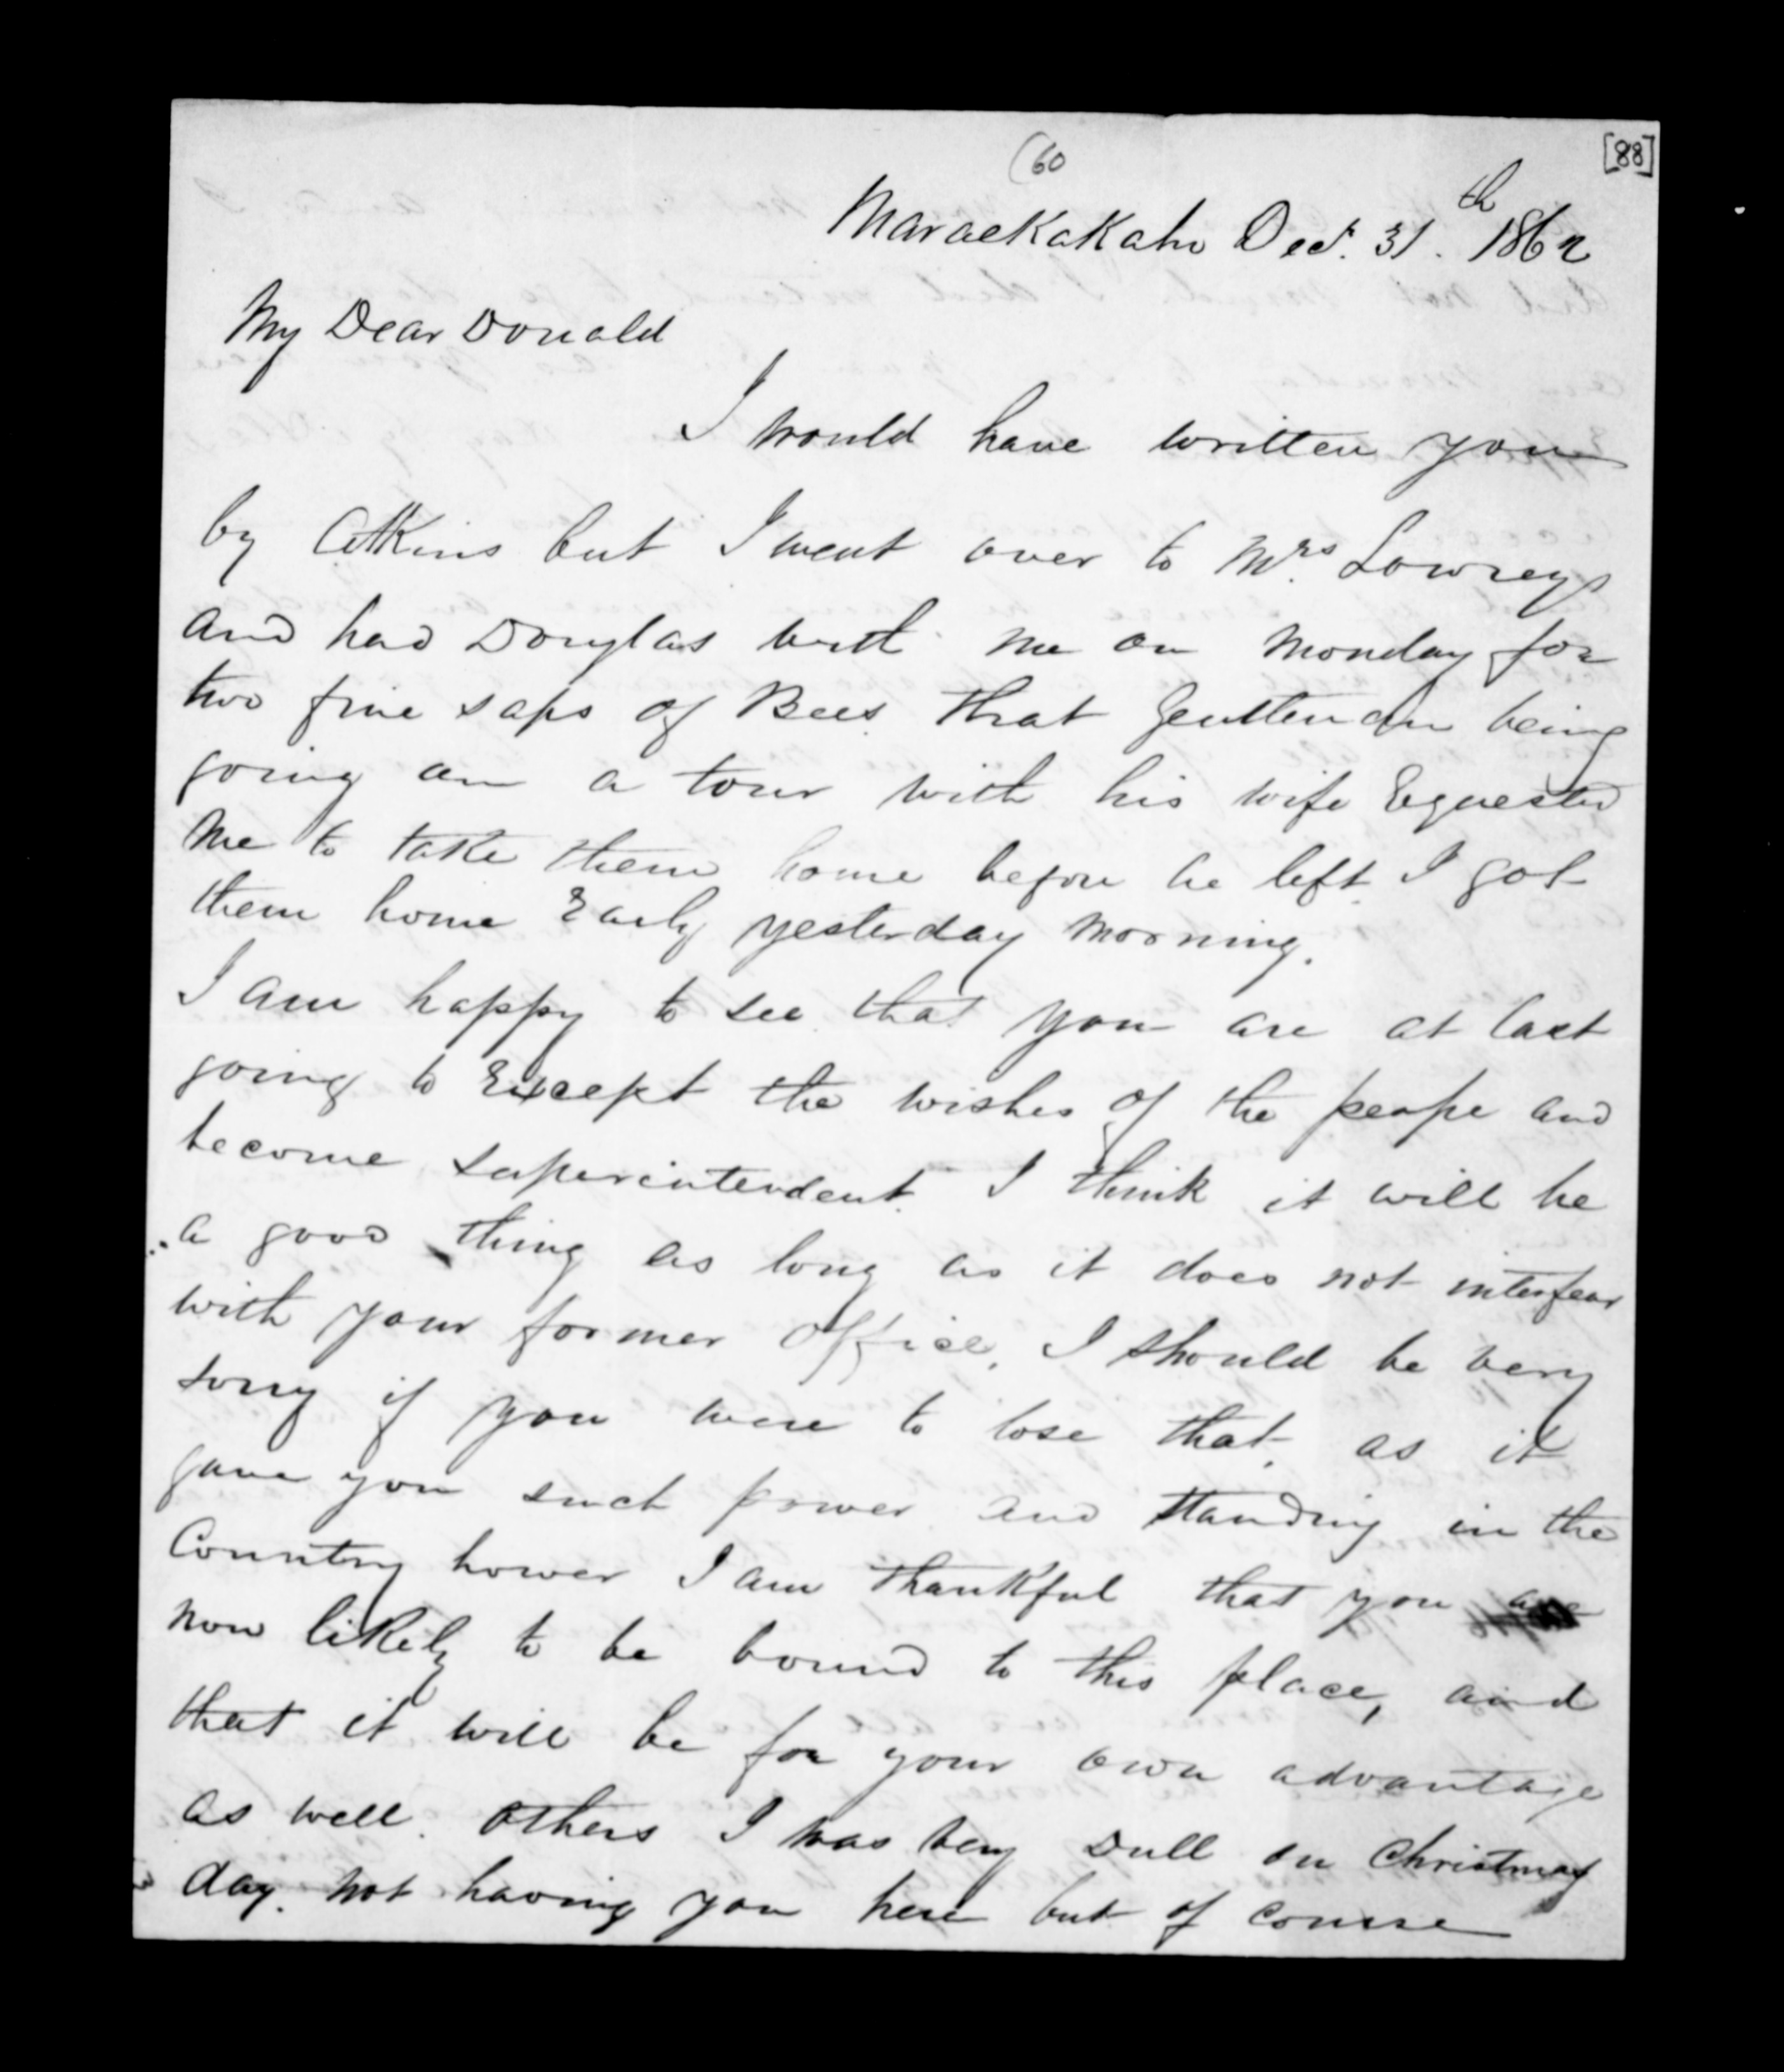 (60
[88]
Maraekakaho Dec.r 31.th 1862
My Dear Donald
I would have written you
by Atkins but I went over to Mrs. Lowreys
and had Douglas with me on Monday for
two fine saps of Bees. that Gentleman being
going on a tour with his wife Equested
me to take them home before he left. I got
them home Early yesterday morning.
I am happy to see that you are at last
going to Except the wishes of the peaple and
become superintendent. I think it will be
a good thing as long as it does not interfear
with your former Office. I should be very
sorry if you were to lose that. as it
gave you such power and standing in the
Country hower I am thankful that you are
now likely to be bound to this place, and
that it will be for your own advantage
as well. Others I was very Dull on Christmas
day. not having you here but of course